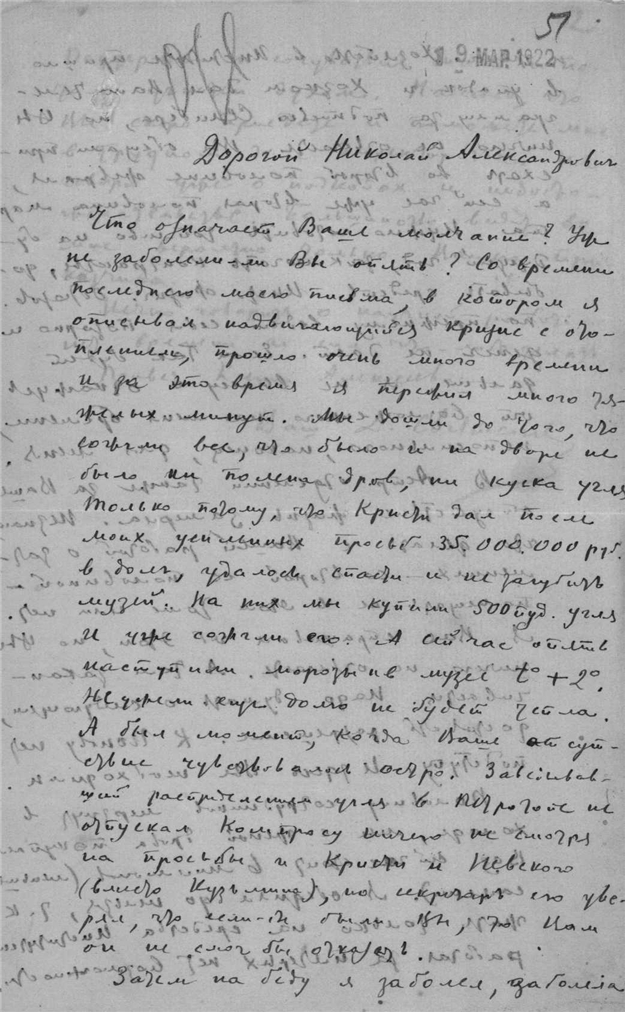 51
19 МАР. 1922
Дорогой Николай Александрович
Что означает Ваше молчание? Уж
не заболели-ли Вы опять? Со времени
последнего моего письма, в котором я
описывал надвигающийся кризис с ото-
плением, прошло очень много времени
и за это время я пережил много тя-
желых минут. Мы дошли до того, что
сожгли все, что было и на дворе не
было ни полена дров, ни куска угля
Только потому, что Кристи дал после
моих усиленных просьб 35.000.000 руб.
в долг, удалось спасти и не загубить
музей. На них мы купили 500 пуд. угля
и уже сожгли его. А сейчас опять
наступили морозы и в музее t° +2°.
Неужели еще долго не будет тепла.
А был момент, когда Ваше отсут-
ствие чувствовалось остро. Заведывав-
ший распределением угля в Петротопе не
отпускал Компросу ничего не смотря
на просьбы и Кристи и Невского
(вместо Кузьмина), но секретарь его уве-
рял, что если-бы были Вы, то Вам
он не смог бы отказать.
Затем на беду я заболел, заболела